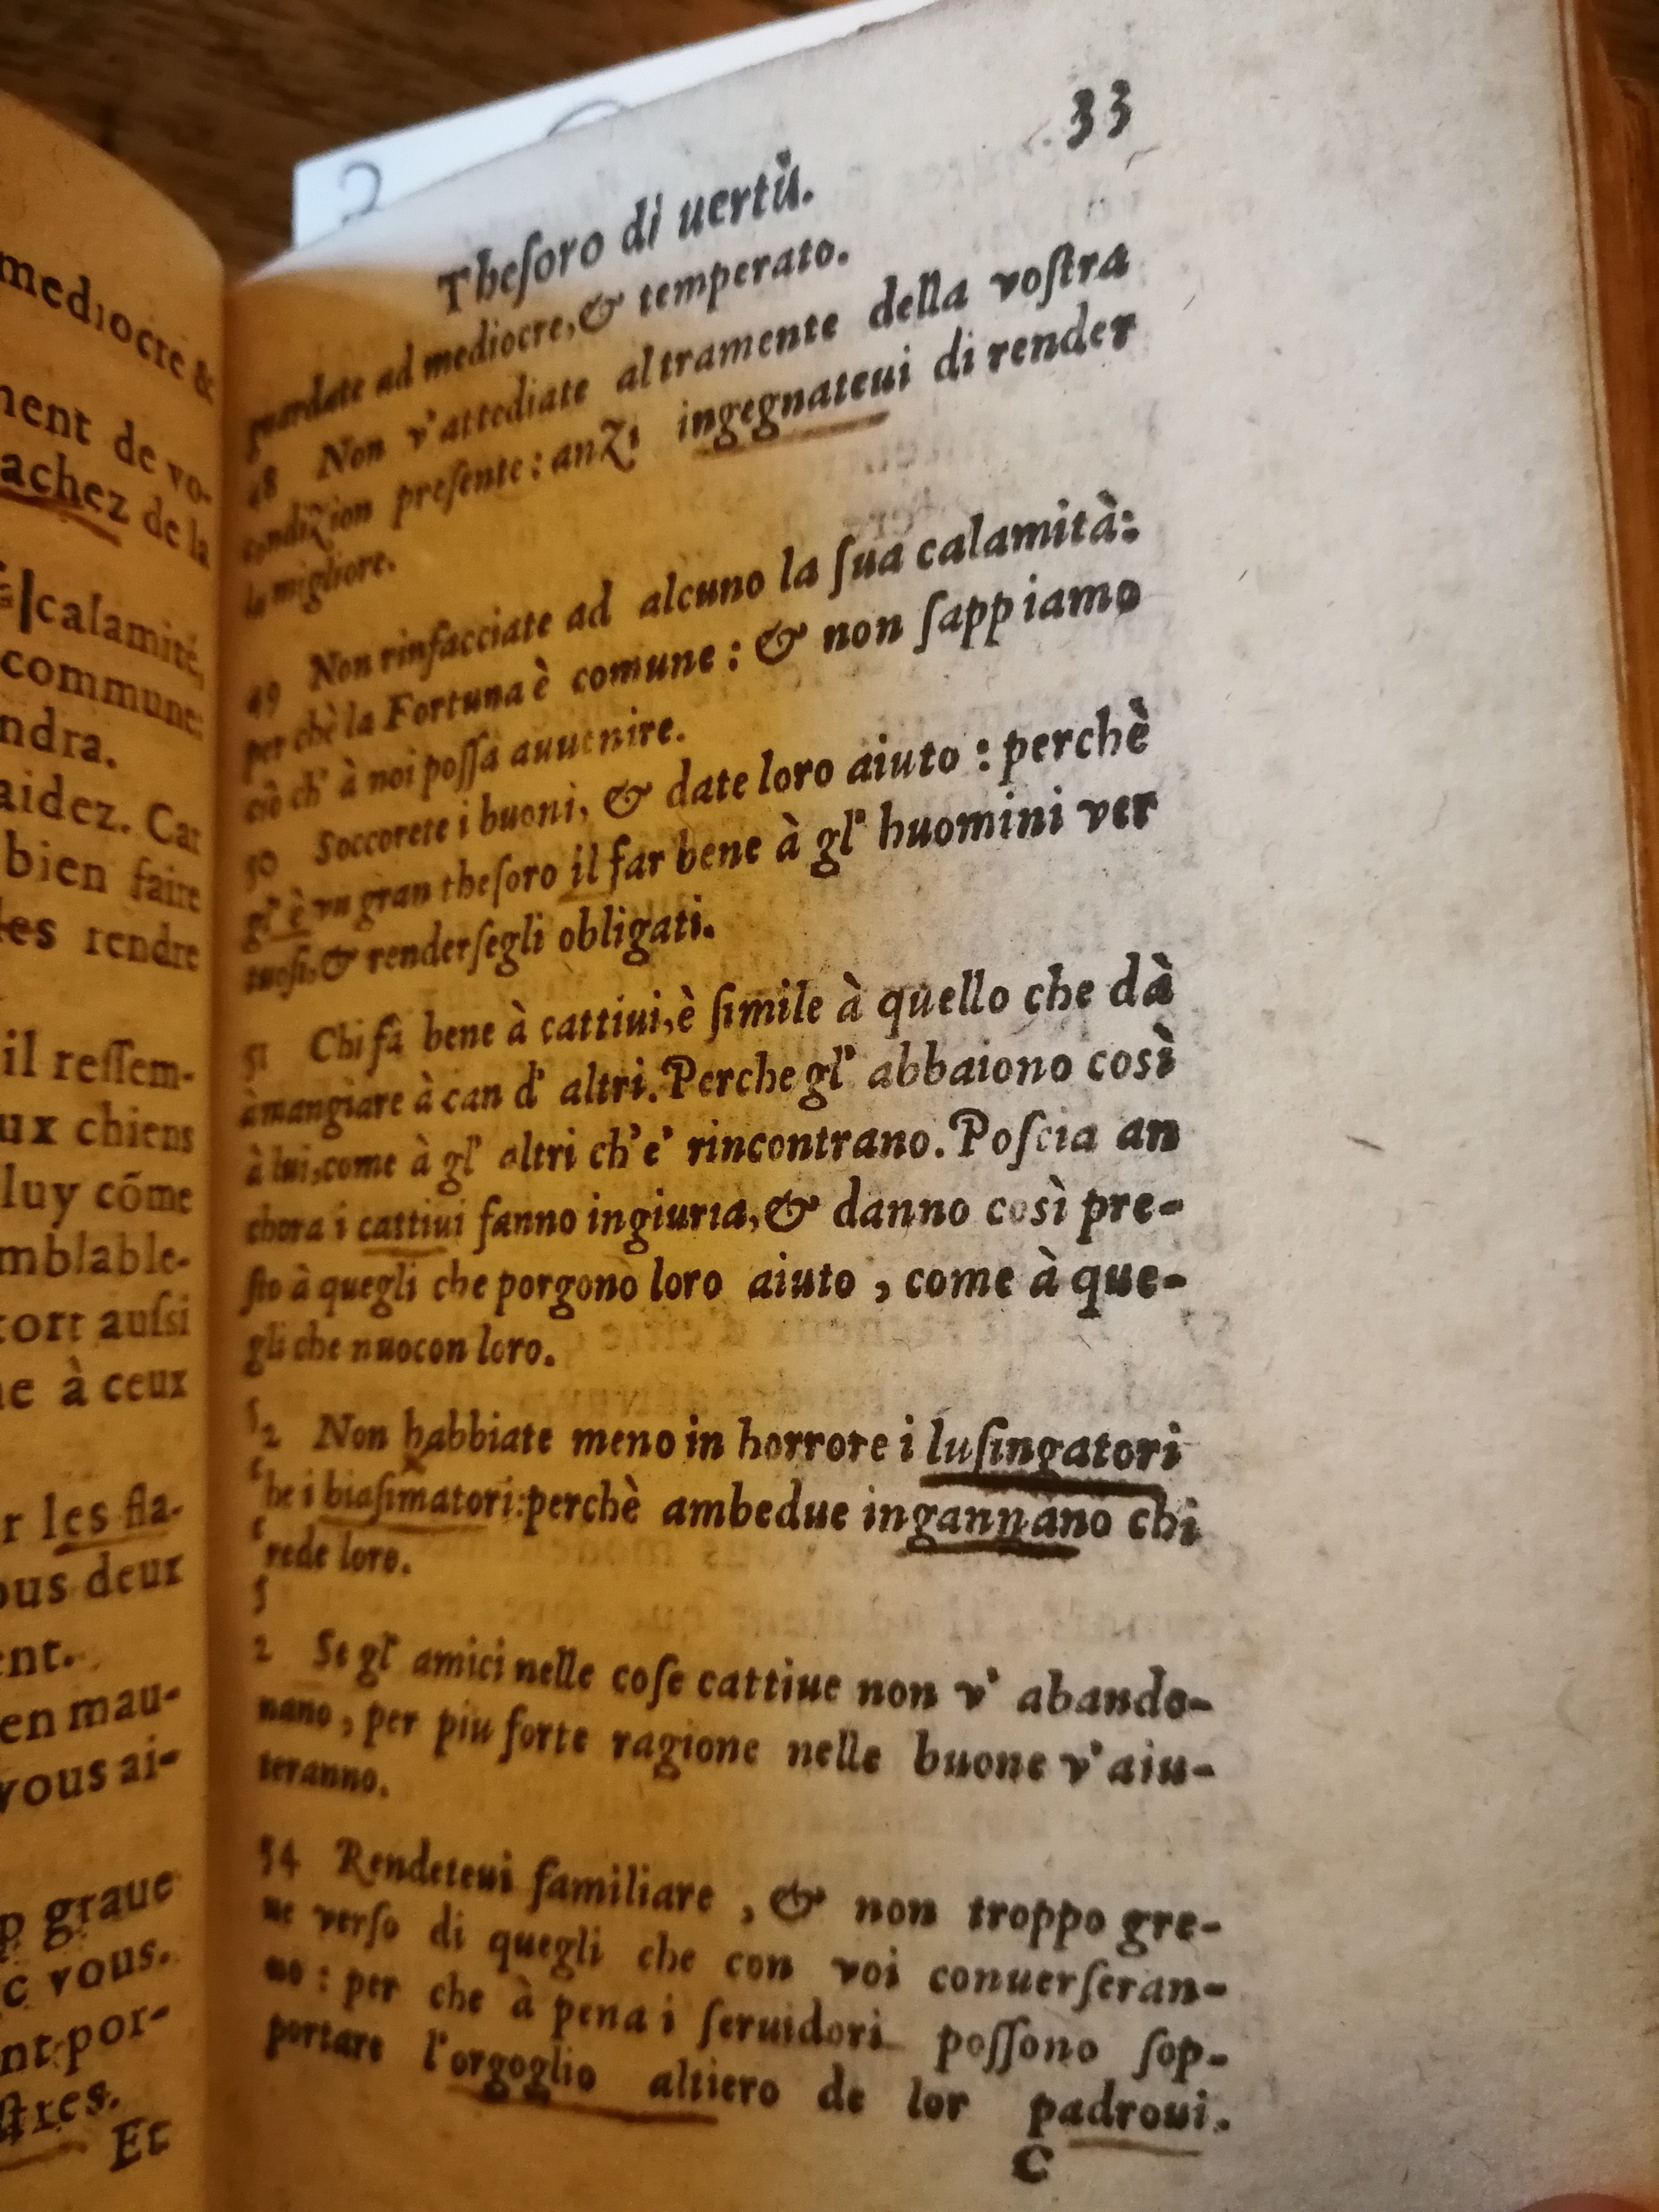 mediocre &
ment de vo-
achez de la
calamité,
commune:
ndra.
aidez. Car
bien faire
les rendre
il reſſem-
ux chiens
luy cōme
mblable-
tort auſsi
ne à ceux
r les fla-
ous deux
ent.
en mau-
vous ai-
p graue
c vous.
nt por-
ſtres.
Et
33
Theſoro di uertù.
guardate ad mediocre, & temperato.
48 Non v'attediate altramente della voſtra
condizion preſente: anzi ingegnateui di render
la migliore.
49 Non rinfacciate ad alcuno la ſua calamità:
per chè la Fortuna è comune: & non ſappiamo
ciò ch' à noi poſſa auuenire.
50 Soccorete i buoni, & date loro aiuto: perchè
gl' è vn gran theſoro il far bene à gl' huomini ver
tuoſi, & renderſegli obligati.
51 Chi fà bene à cattiui, è ſimile à quello che dà
à mangiare à can d' altri. Perche gl' abbaiono così
à lui, come à gl' altri ch'e' rincontrano. Poſcia an
chora i cattiui fanno ingiuria, & danno così pre-
ſto à quegli che porgono loro aiuto, come à que-
gli che nuocon loro.
52 Non habbiate meno in horrore i luſingatori
che i biaſimatori: perchè ambedue ingannano chi
crede loro.
5
2 Se gl' amici nelle coſe cattiue non v' abando-
nano, per piu forte ragione nelle buone v'aiu-
teranno.
54 Rendeteui familiare, & non troppo gre-
ue verſo di quegli che con voi conuerſeran-
no: per che à pena i ſeruidori poſſono ſop-
portare l'orgoglio altiero de lor padroui.
C